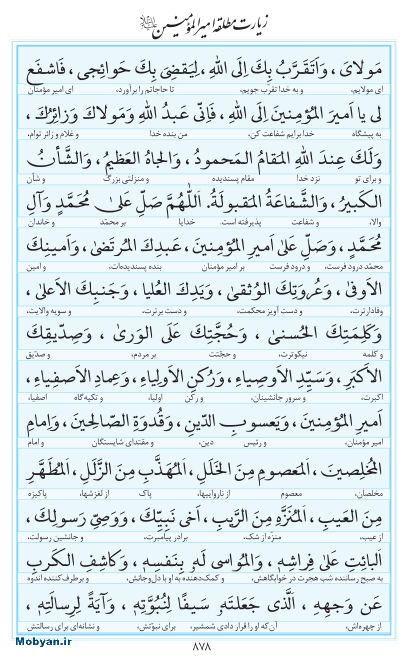 زیارت مطلقه امیرالمؤمنین علیه‌السلام
مَولایَ، وَاَتَقَرَّبُ بِكَ اِلَی اللهِ، لِیَقضِیَ بِكَ حَوائِجی، فَاشفَع
ای مولایم، و به خدا تقرب جویم، تا حاجاتم را برآورد، ای امیر مؤمنان
لی یا اَمیرَ المُؤمِنینَ اِلَی اللهِ، فَاِنّی عَبدُ اللهِ وَمَولاكَ وَزائِرُكَ،
به پیشگاه خدا برایم شفاعت کن، من بنده خدا و غلام و زائر توام،
وَلَكَ عِندَ اللهِ المَقامُ المَحمودُ، وَالجاهُ العَظیمُ، وَالشَّأنُ
و برای تو نزد خدا مقام پسندیده و منزلتی بزرگ و شأن
الكَبیرُ، وَالشَّفاعَةُ المَقبولَةُ. اَللّٰهُمَّ صَلِّ عَلیٰ مُحَمَّدٍ وَآلِ
والا، و شفاعت پذیرفته است. خدایا بر محمّد و خاندان
مُحَمَّدٍ، وَصَلِّ عَلیٰ اَمیرِ المُؤمِنینَ، عَبدِكَ المُرتَضیٰ، وَاَمینِكَ
محمّد درود فرست، و درود فرست بر امیر مؤمنان بنده پسندیده‌ات، و امین
الاَوفیٰ، وَعُروَتِكَ الوُثقیٰ، وَیَدِكَ العُلیا، وَجَنبِكَ الاَعلیٰ،
وفادارترت، و دست آویز محکمت، و دست برترت، و سویه والایت،
وَكَلِمَتِكَ الحُسنیٰ، وَحُجَّتِكَ عَلَی الوَریٰ، وَصِدّیقِكَ
و کلمه نیکوترت، و حجّتت بر مردم، و صدّیق
الاَكبَرِ، وَسَیِّدِ الاَوصِیاءِ، وَرُكنِ الاَولِیاءِ، وَعِمادِ الاَصفِیاءِ،
اکبرت، و سرور جانشینان، و رکن اولیا، و تکیه‌گاه اصفیا،
اَمیرِ المُؤمِنینَ، وَیَعسوبِ الدّینِ، وَقُدوَةِ الصّالِحینَ، وَاِمامِ
امیر مؤمنان، و رئیس دین، و مقتدای شایستگان و امام
المُخلِصینَ، اَلمَعصومِ مِنَ الخَلَلِ، اَلمُهَذَّبِ مِنَ الزَّلَلِ، اَلمُطَهَّرِ
مخلصان، معصوم از نارواییها، پاک از لغزشها، پاکیزه
مِنَ العَیبِ، اَلمُنَزَّهِ مِنَ الرَّیبِ، اَخی نَبِیِّكَ، وَوَصِیِّ رَسولِكَ،
از عیب، منزه از شک، برادر پیامبرت، و جانشین رسولت،
البائِتِ عَلیٰ فِراشِهِ، وَالمُواسی لَهُ بِنَفسِهِ، وَكاشِفِ الكَربِ
به صبح رساننده شب هجرت در خوابگاهش، و کمک‌دهنده به او با دل‌وجانش، و برطرف‌کننده اندوه
عَن وَجهِهِ، اَلَّذی جَعَلتَهُ سَیفًا لِنُبُوَّتِهِ، وَآیَةً لِرِسالَتِهِ،
از چهره‌اش، آن‌که او را قرار دادی شمشیر، برای نبوّتش، و نشانه‌ای برای رسالتش،
۸۷۸
Mobyan.ir